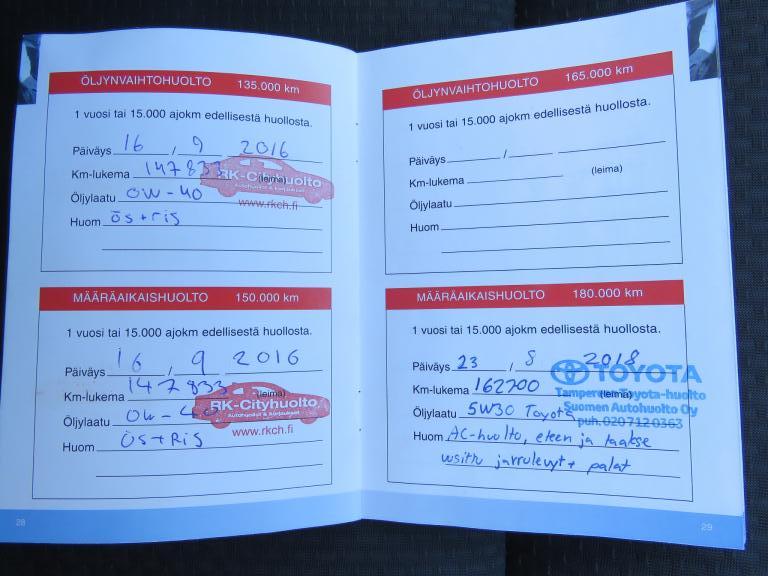 ÖLJYNVAIHTOHUOLTO 135.000 km
1 vuosi tai 15.000 ajokm edellisestä huollosta.
Päiväys 16 / 9 2016
Km-lukema 147833 (leima)
RK-Cityhuolto
Autohuollot & korjaukset
www.rkch.fi
Öljylaatu 0W-40
Huom ös+ris
MÄÄRÄAIKAISHUOLTO 150.000 km
1 vuosi tai 15.000 ajokm edellisestä huollosta.
Päiväys 16 / 9 2016
Km-lukema 147833 (leima)
RK-Cityhuolto
Autohuollot & korjaukset
www.rkch.fi
Öljylaatu 0W-40
Huom ÖS+RiS
28
ÖLJYNVAIHTOHUOLTO 165.000 km
1 vuosi tai 15.000 ajokm edellisestä huollosta.
Päiväys /
Km-lukema (leima)
Öljylaatu
Huom
MÄÄRÄAIKAISHUOLTO 180.000 km
1 vuosi tai 15.000 ajokm edellisestä huollosta.
Päiväys 23 / 8 2018
TOYOTA
Km-lukema 162700 (leima)
Tampereen Toyota-huolto
Öljylaatu 5W30 Toyota
Suomen Autohuolto Oy
puh. 0207120363
Huom AC-huolto, eteen ja taakse
uusittu jarrulevyt + palat
29